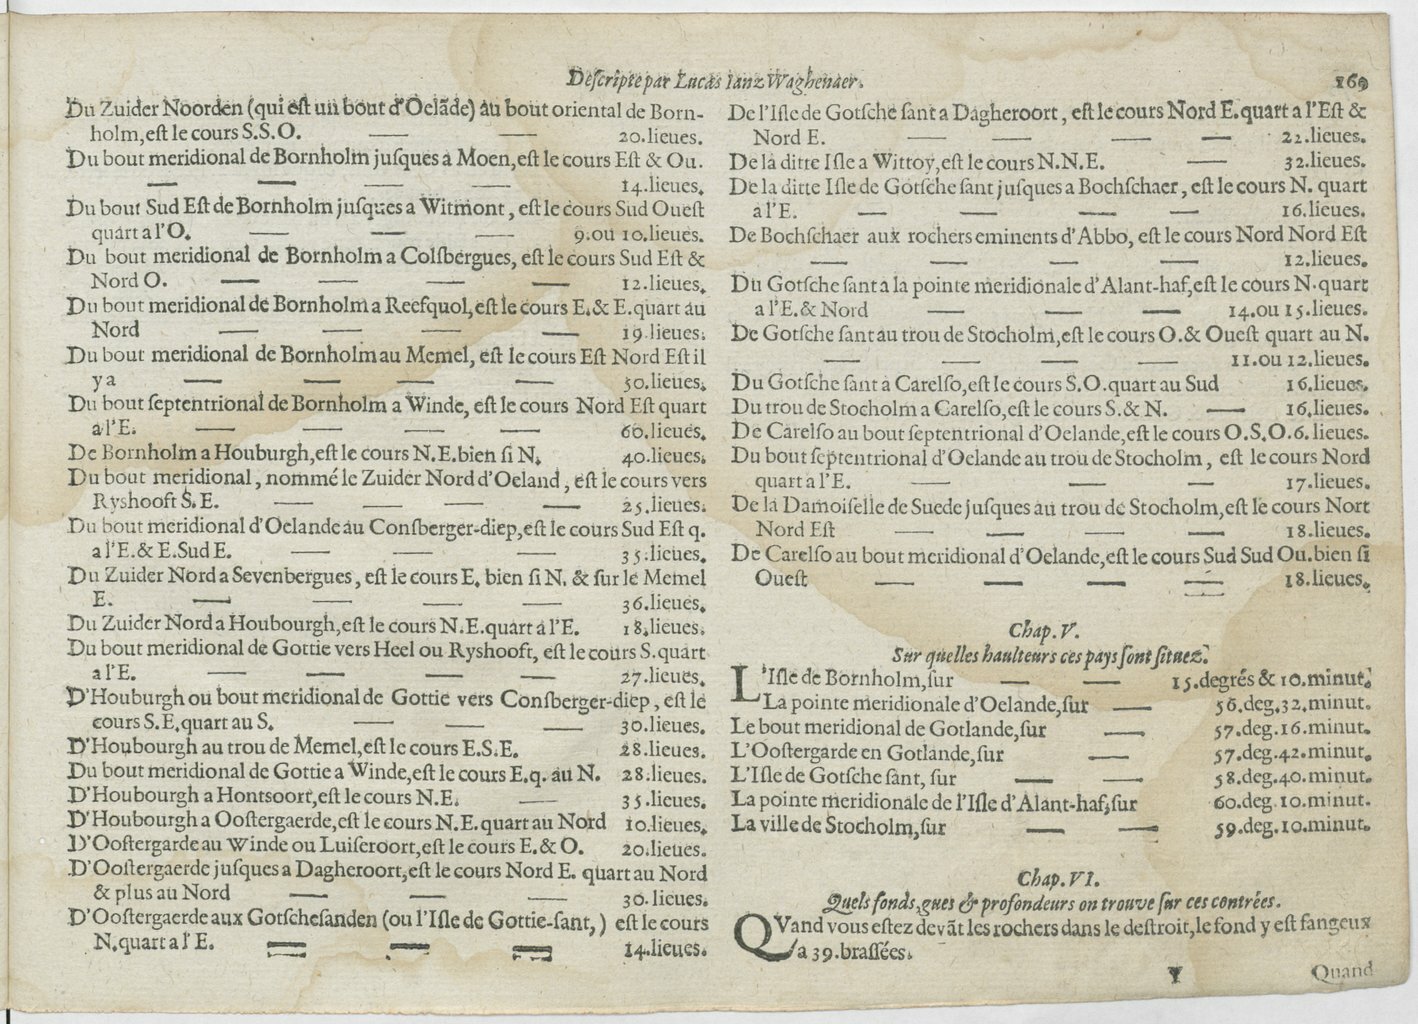 Descripte par Lucas Ianz Waghenaer.
169
Du Zuider Noorden (qui est un bout d'Oelãde) au bout oriental de Born-
holm, est le cours S.S.O. — — 20. lieues.
Du bout meridional de Bornholm jusques a Moen, est le cours Est & Ou.
— — — — 14. lieues.
Du bout Sud Est de Bornholm jusques a Witmont, est le cours Sud Ouest
quart a l'O. — — — 9. ou 10. lieues.
Du bout meridional de Bornholm a Colsbergues, est le cours Sud Est &
Nord O. — — — — 12. lieues.
Du bout meridional de Bornholm a Reefquol, est le cours E. & E. quart au
Nord — — — — 19. lieues.
Du bout meridional de Bornholm au Memel, est le cours Est Nord Est il
y a — — — — 50. lieues.
Du bout septentrional de Bornholm a Winde, est le cours Nord Est quart
a l'E. — — — — 60. lieues.
De Bornholm a Houburgh, est le cours N.E. bien si N. 40. lieues.
Du bout meridional, nommé le Zuider Nord d'Oeland, est le cours vers
Ryshooft S.E. — — — — 25. lieues.
Du bout meridional d'Oelande au Consberger-diep, est le cours Sud Est q.
a l'E. & E. Sud E. — — — 35. lieues.
Du Zuider Nord a Sevenbergues, est le cours E. bien si N. & sur le Memel
E. — — — — 36. lieues.
Du Zuider Nord a Houbourgh, est le cours N.E. quart a l'E. 18. lieues.
Du bout meridional de Gottie vers Heel ou Ryshooft, est le cours S. quart
a l'E. — — — — 27. lieues.
D'Houburgh ou bout meridional de Gottie vers Consberger-diep, est le
cours S.E. quart au S. — — — 30. lieues.
D'Houbourgh au trou de Memel, est le cours E.S.E. 28. lieues.
Du bout meridional de Gottie a Winde, est le cours E. q. au N. 28. lieues.
D'Houbourgh a Hontsoort, est le cours N.E. — 35. lieues.
D'Houbourgh a Oostergaerde, est le cours N.E. quart au Nord 10. lieues.
D'Oostergarde au Winde ou Luiseroort, est le cours E. & O. 20. lieues.
D'Oostergaerde jusques a Dagheroort, est le cours Nord E. quart au Nord
& plus au Nord — — — 30. lieues.
D'Oostergaerde aux Gotschesanden (ou l'Isle de Gottie-sant,) est le cours
N. quart a l'E. — — — 14. lieues.
De l'Isle de Gotsche sant a Dagheroort, est le cours Nord E. quart a l'Est &
Nord E. — — — — 22. lieues.
De la ditte Isle a Wittoy, est le cours N.N.E. — 32. lieues.
De la ditte Isle de Gotsche sant jusques a Bochschaer, est le cours N. quart
a l'E. — — — — 16. lieues.
De Bochschaer aux rochers eminents d'Abbo, est le cours Nord Nord Est
— — — — 12. lieues.
Du Gotsche sant a la pointe meridionale d'Alant-haf, est le cours N. quart
a l'E. & Nord — — — 14. ou 15. lieues.
De Gotsche sant au trou de Stocholm, est le cours O. & Ouest quart au N.
— — — — 11. ou 12. lieues.
Du Gotsche sant a Carelso, est le cours S.O. quart au Sud 16. lieues.
Du trou de Stocholm a Carelso, est le cours S. & N. — 16. lieues.
De Carelso au bout septentrional d'Oelande, est le cours O.S.O. 6. lieues.
Du bout septentrional d'Oelande au trou de Stocholm, est le cours Nord
quart a l'E. — — — 17. lieues.
De la Damoiselle de Suede jusques au trou de Stocholm, est le cours Nort
Nord Est — — — — 18. lieues.
De Carelso au bout meridional d'Oelande, est le cours Sud Sud Ou. bien si
Ouest — — — — 18. lieues.
Chap. V.
Sur quelles haulteurs ces pays sont situez.
L'Isle de Bornholm, sur — — 15. degrés & 10. minut.
La pointe meridionale d'Oelande, sur — 56. deg. 32. minut.
Le bout meridional de Gotlande, sur — 57. deg. 16. minut.
L'Oostergarde en Gotlande, sur — 57. deg. 42. minut.
L'Isle de Gotsche sant, sur — — 58. deg. 40. minut.
La pointe meridionale de l'Isle d'Alant-haf, sur 60. deg. 10. minut.
La ville de Stocholm, sur — — 59. deg. 10. minut.
Chap. VI.
Quels fonds, gues & profondeurs on trouve sur ces contrées.
QVand vous estez devãt les rochers dans le destroit, le fond y est fangeux
a 39. brassées.
Y
Quand